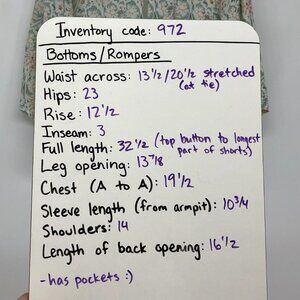 Inventory code: 972
Bottoms/Rompers
Waist across: 13 1/2/20 1/2 stretched
(at tie)
Hips: 23
Rise: 12 1/2
Inseam: 3
Full length: 32 1/2 (top button to longest
part of shorts)
Leg opening: 13 7/8
Chest (A to A): 19 1/2
Sleeve length (from armpit): 10 3/4
Shoulders: 14
Length of back opening: 16 1/2
- has pockets :)